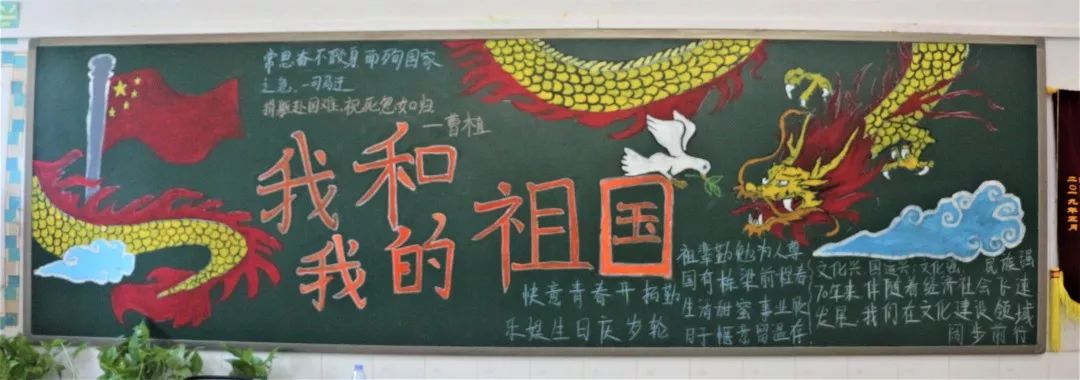 常思奋不顾身而殉国家
之急.一司马迁
捐躯赴国难,视死忽如归
一曹植
我和
我的祖国
快意青春开拓勤
乐 生日庆岁轮
祖辈勤勉为人尊
国有栋梁前程春
生活甜蜜事业
日子惬意留温存
文化兴国运兴,文化强 民族强
70年来,伴随着经济社会飞速
发展,我们在文化建设领域
同步前行
二〇一九年五月